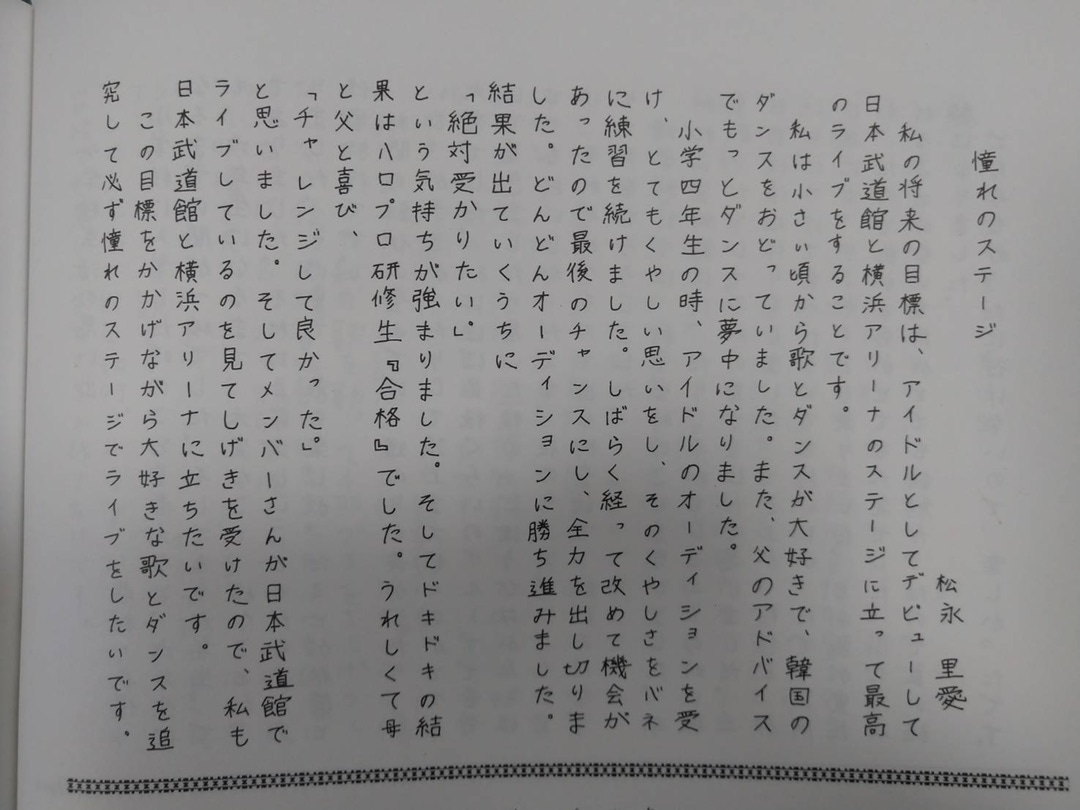 憧れのステージ
松永 里愛
私の将来の目標は、アイドルとしてデビューして
日本武道館と横浜アリーナのステージに立って最高
のライブをすることです。
私は小さい頃から歌とダンスが大好きで、韓国の
ダンスをおどっていました。また、父のアドバイス
でもっとダンスに夢中になりました。
小学四年生の時、アイドルのオーディションを受
け、とてもくやしい思いをし、そのくやしさをバネ
に練習を続けました。しばらく経って改めて機会が
あったので最後のチャンスにし、全力を出し切りま
した。どんどんオーディションに勝ち進みました。
結果が出ていくうちに
「絶対受かりたい」
という気持ちが強まりました。そしてドキドキの結
果はハロプロ研修生『合格』でした。うれしくて母
と父と喜び、
「チャレンジして良かった。」
と思いました。そしてメンバーさんが日本武道館で
ライブしているのを見てしげきを受けたので、私も
日本武道館と横浜アリーナに立ちたいです。
この目標をかかげながら大好きな歌とダンスを追
究して必ず憧れのステージでライブをしたいです。